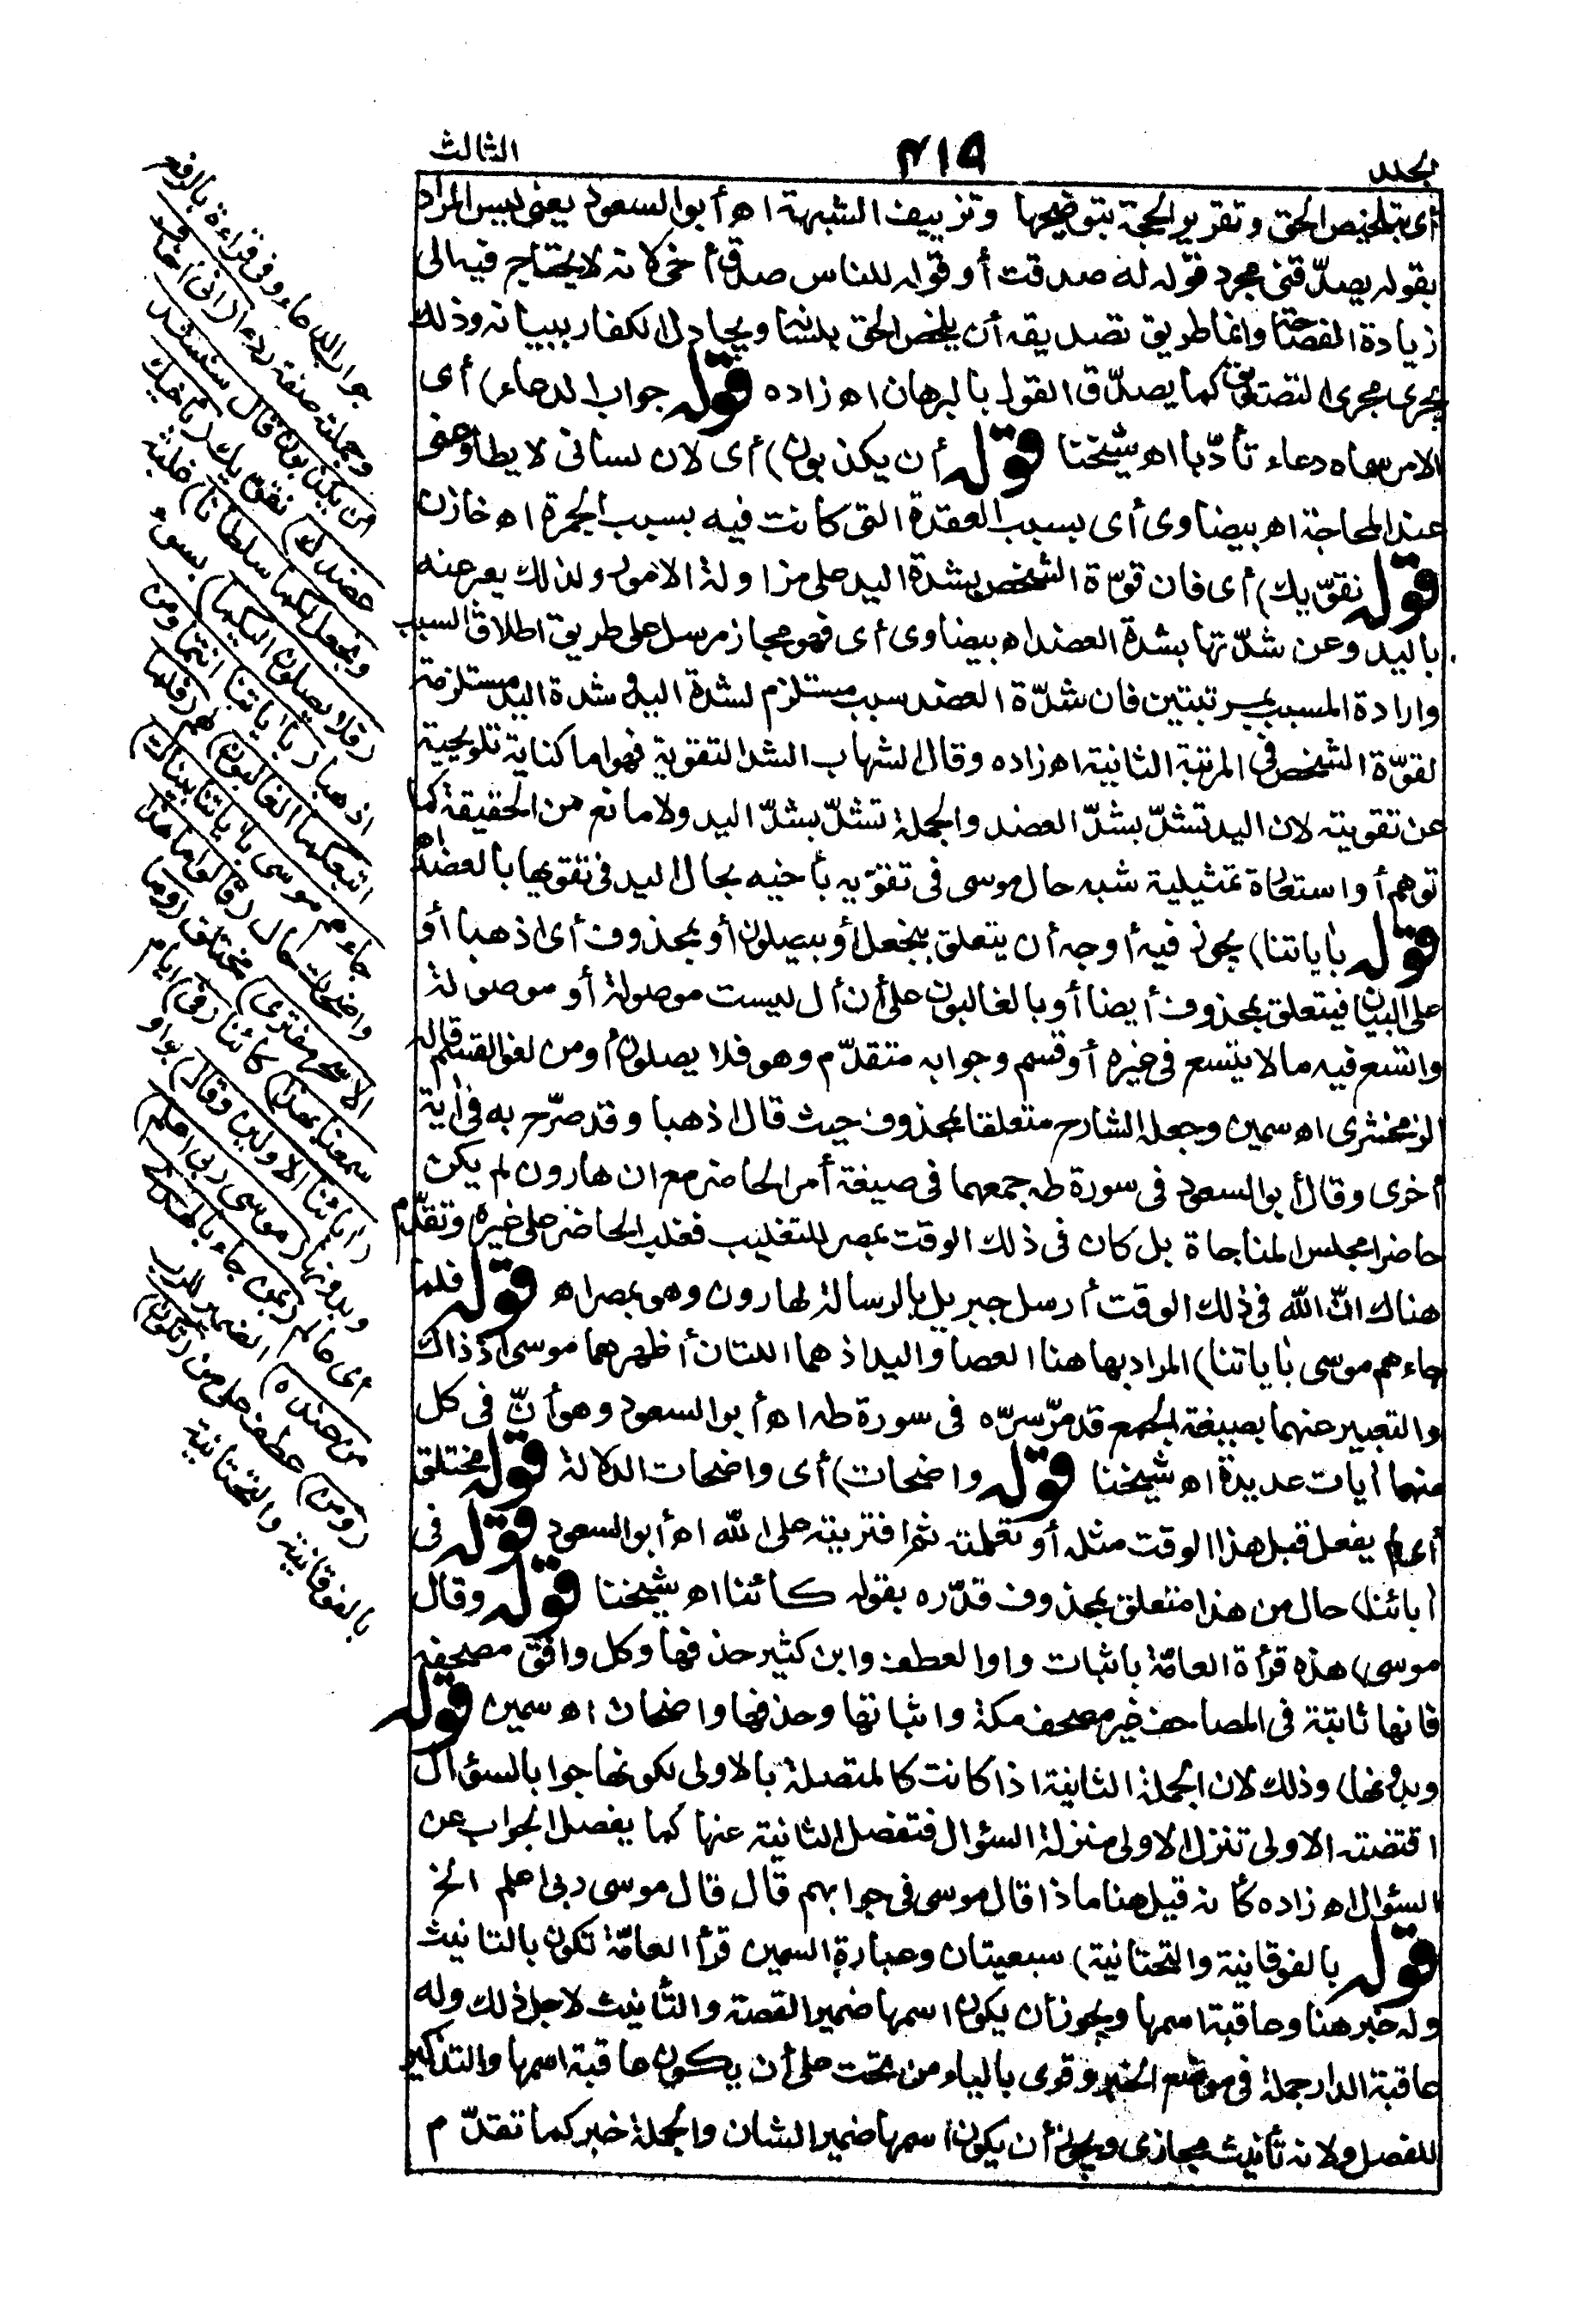 المجلد
٤١٩
الثالث
أى بتلخيص الحق وتقرير الحجة بتوضيحها وتزييف الشبهة اه أبو السعود يعنى ليس المراد
بقوله يصدّقنى مجرد قوله له صدقت أو قوله للناس صدق أخى لانه لا يحتاج فيه الى
زيادة الفصاحة وانما طريق تصديقه أن يلخص الحق بلسانه ويجادل الكفار ببيانه وذلك
يجرى مجرى التصديق كما يصدّق القول بالبرهان اه زاده قوله جواب الدعاء) أى
الامر سماه دعاء تأدّبا اه شيخنا قوله أن يكذبون) أى لان لسانى لا يطاوعنى
عند المحاجة اه بيضاوى أى بسبب العقدة التى كانت فيه بسبب الجمرة اه خازن
قوله نقوّيك) أى فان قوّة الشخص بشدة اليد على مزاولة الامور ولذلك يعبر عنه
باليد وعن شدّتها بشدة العضد اه بيضاوى أى فهو مجاز مرسل على طريق اطلاق السبب
وارادة المسبب بمرتبتين فان شدّة العضد سبب مستلزم لشدة اليد وشدة اليد مستلزمة
لقوّة الشخص فى المرتبة الثانية اه زاده وقال الشهاب الشد التقوية فهو اما كناية تلويحية
عن تقويته لان اليد تشتدّ بشدّ العضد والجملة تشتدّ بشدّ اليد ولا مانع من الحقيقة كما
توهم أو استعارة تمثيلية شبه حال موسى فى تقوّيه بأخيه بحال اليد فى تقويها بالعضد اه
قوله بآياتنا) يجوز فيه أوجه أن يتعلق بنجعل أو بيصلون أو بمحذوف أى اذهبا أو
على البيان فيتعلق بمحذوف أيضا أو بالغالبون على أن أل ليست موصولة أو موصولة
واتسع فيه ما لا يتسع فى غيره أو قسم وجوابه متقدّم وهو فلا يصلون أو من لغو القسم قاله
الزمخشرى اه سمين وجعله الشارح متعلقا بمحذوف حيث قال اذهبا وقد صرّح به فى آية
أخرى وقال أبو السعود فى سورة طه جمعهما فى صيغة أمر الحاضر مع ان هارون لم يكن
حاضرا مجلس المناجاة بل كان فى ذلك الوقت بمصر للتغليب فغلب الحاضر على غيره وتقدّم
هناك انّ الله فى ذلك الوقت أرسل جبريل بالرسالة لهارون وهو بمصر اه قوله فلما
جاءهم موسى بآياتنا) المراد بها هنا العصا واليد اذ هما اللتان أظهرهما موسى اذ ذاك
والتعبير عنهما بصيغة الجمع قد مرّ سرّه فى سورة طه اه أبو السعود وهو أنّ فى كل
منهما آيات عديدة اه شيخنا قوله واضحات) أى واضحات الدلالة قوله مختلق
أى لم يفعل قبل هذا الوقت مثله أو تعلمته ثم افتريته على الله اه أبو السعود قوله فى
آبائنا) حال من هذا متعلق بمحذوف قدّره بقوله كائنا اه شيخنا قوله وقال
موسى) هذه قرأة العامّة باثبات واو العطف وابن كثير حذفها وكل وافق مصحفه
فانها ثابتة فى المصاحف غير مصحف مكة واثباتها وحذفها واضحان اه سمين قوله
وبدونها) وذلك لان الجملة الثانية اذا كانت كالمتصلة بالاولى لكونها جوابا لسؤال
اقتضته الاولى تنزل الاولى منزلة السؤال فتفصل الثانية عنها كما يفصل الجواب عن
السؤال اه زاده كأنه قيل هنا ماذا قال موسى فى جوابهم قال قال موسى ربى اعلم الخ
قوله بالفوقانية والتحتانية) سبعيتان وعبارة السمين قرأ العامّة تكون بالتانيث
وله خبر هنا وعاقبة اسمها ويجوز أن يكون اسمها ضمير القصة والتأنيث لاجل ذلك وله
عاقبة الدار جملة فى موضع الخبر وقرى بالياء من تحت على أن يكون عاقبة اسمها والتذكير
للفصل ولانه تأنيث مجازى ويجوز أن يكون اسمها ضمير الشان والجملة خبر كما تقدّم
جواب الدعاء وفى قراءة بالرفع
وجملته صفة ردءا (انى اخاف
ان يكذبون قال سنشد
عضدك) نقويك (بأخيك
ونجعل لكما سلطانا) غلبة
(فلا يصلون اليكما) بسوء
اذهبا (بآياتنا انتما ومن
اتبعكما الغالبون) لهم (فلما
جاءهم موسى بآياتنا بينات)
واضحات حال (قالوا ما هذا
الا سحر مفترى) مختلق (وما
سمعنا بهذا) كائنا (فى) ايام
(آبائنا الاولين وقال) بواو
وبدونها (موسى ربى اعلم)
اى عالم (بمن جاء بالهدى
من عنده) الضمير للرب
(ومن) عطف على من (تكون)
بالفوقانية والتحتانية